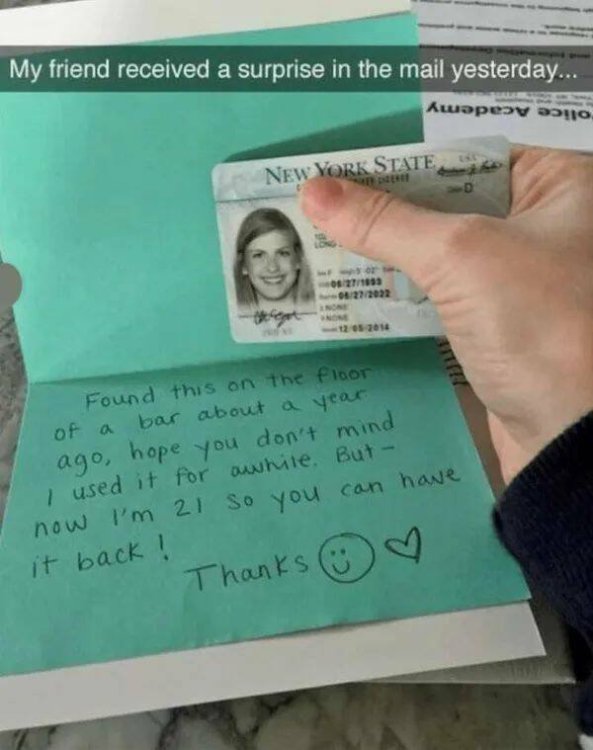 My friend received a surprise in the mail yesterday...
olice Academy
NEW YORK STATE
D
08/27/1993
08/27/2022
NONE
NONE
12 05 2014
Found this on the floor
of a bar about a year
ago, hope you don't mind
I used it for awhile. But -
now I'm 21 so you can have
it back!
Thanks